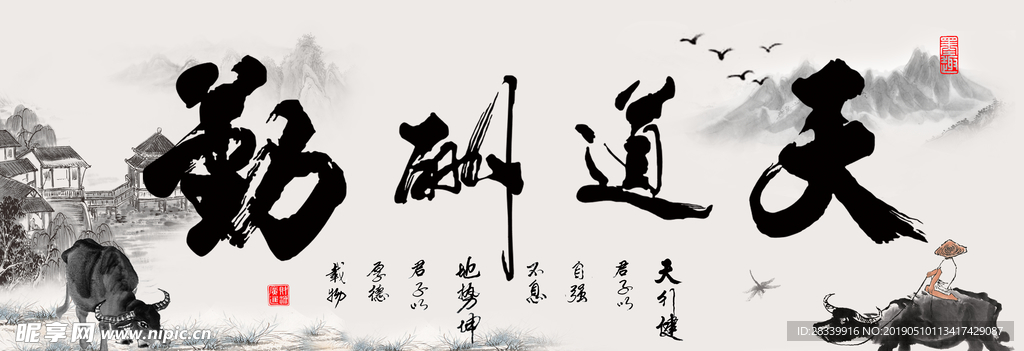 天道酬勤
天行健
君子以
自强
不息
地势坤
君子以
厚德
载物
昵享网 www.nipic.cn
ID:28339916 NO:20190510113417429087